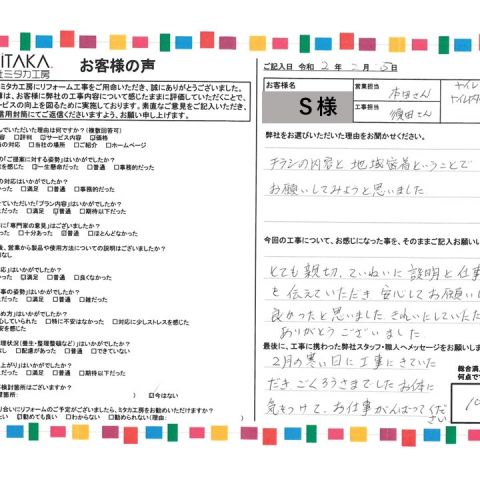 ITAKA.
社ミタカ工房
お客様の声
ミタカ工房にリフォーム工事をご用命いただき、誠にありがとうございました。
事は、お客様に弊社の工事内容について感じたままに評価していただくことで、
ービスの向上を図るために実施しております。素直なご意見をご記入いただき、
信用封筒にてご返信くださいますよう、お願い申し上げます。
んでいただいた理由は何ですか?(複数回答可)
内容 □評判 ☑サービス内容 ☑価格
の対応 □当社の場所 □ご紹介 □ホームページ
の「ご提案に対する姿勢」はいかがでしたか?
を感じた □一生懸命だった □普通 □事務的だった
の対応はいかがでしたか?
かった □満足 □普通 □事務的だった
せていただいた「プラン内容」はいかがでしたか?
かった □満足 ☑普通 □期待以下だった
に「専門家の意見」はございましたか?
った □十分あった ☑普通 □ほとんどなかった
後、営業から製品や使用方法についての説明はございましたか?
□なし
対応」はいかがでしたか?
だった ☑満足 □普通 □良くなかった
事の姿勢」はいかがでしたか?
だった □満足 □普通 □雑だった
め方」はいかがでしたか?
心していられた □特に不安はなかった □対応に少しストレスを感じた
理状況(養生・整理整頓など)」はいかがでしたか?
なし □配慮があった □できていない
上がり」はいかがでしたか?
だった □満足 □普通 □期待以下だった
検討箇所はございますか?
箇所: ) ☑今はない
り合いにリフォームのご予定がございましたら、ミタカ工房をお勧めいただけますか?
たい □勧めても良い □わからない □勧めない(理由:
ご記入日 令和 2 年 2 月 5 日
お客様名
S様
営業担当
本田さん
工事担当
須田さん
タイル
弊社をお選びいただいた理由をお聞かせください。
チラシの内容と 地域密着ということで
お願いしてみようと思いました
今回の工事について、お感じになった事を、そのままご記入お願いし
とても親切、ていねいに 説明と仕事
を 伝えていただき 安心してお願いし
良かったと思いました。きれいにしていただ
ありがとうございました
最後に、工事に携わった弊社スタッフ・職人へメッセージをお願いしま
2月の寒い日に工事にきていた
だき ごくろうさまでした お体に
気をつけて、お仕事がんばってくだ
さい
総合満
何点で
10